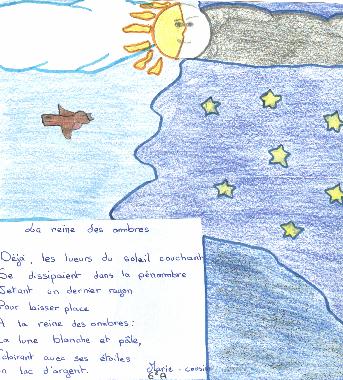 La reine des ombres
Déjà, les lueurs du soleil couchant
Se dissipaient dans la pénombre
Jetant un dernier rayon
Pour laisser place
A la reine des ombres:
La lune blanche et pâle,
Éclairant avec ses étoiles
un lac d'argent.
Marie -
6°A